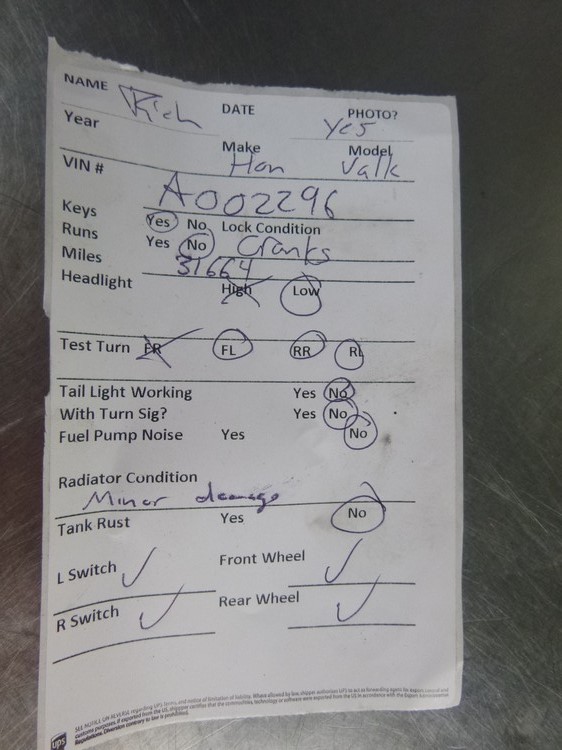 NAME Rich DATE PHOTO? Yes
Year Make Hon Model Valk
VIN # A002296
Keys Yes No Lock Condition
Runs Yes No Cranks
Miles 31664
Headlight High Low
Test Turn FR FL RR RL
Tail Light Working Yes No
With Turn Sig? Yes No
Fuel Pump Noise Yes No
Radiator Condition
Minor damage
Tank Rust Yes No
L Switch ✓ Front Wheel ✓
R Switch ✓ Rear Wheel ✓
ups